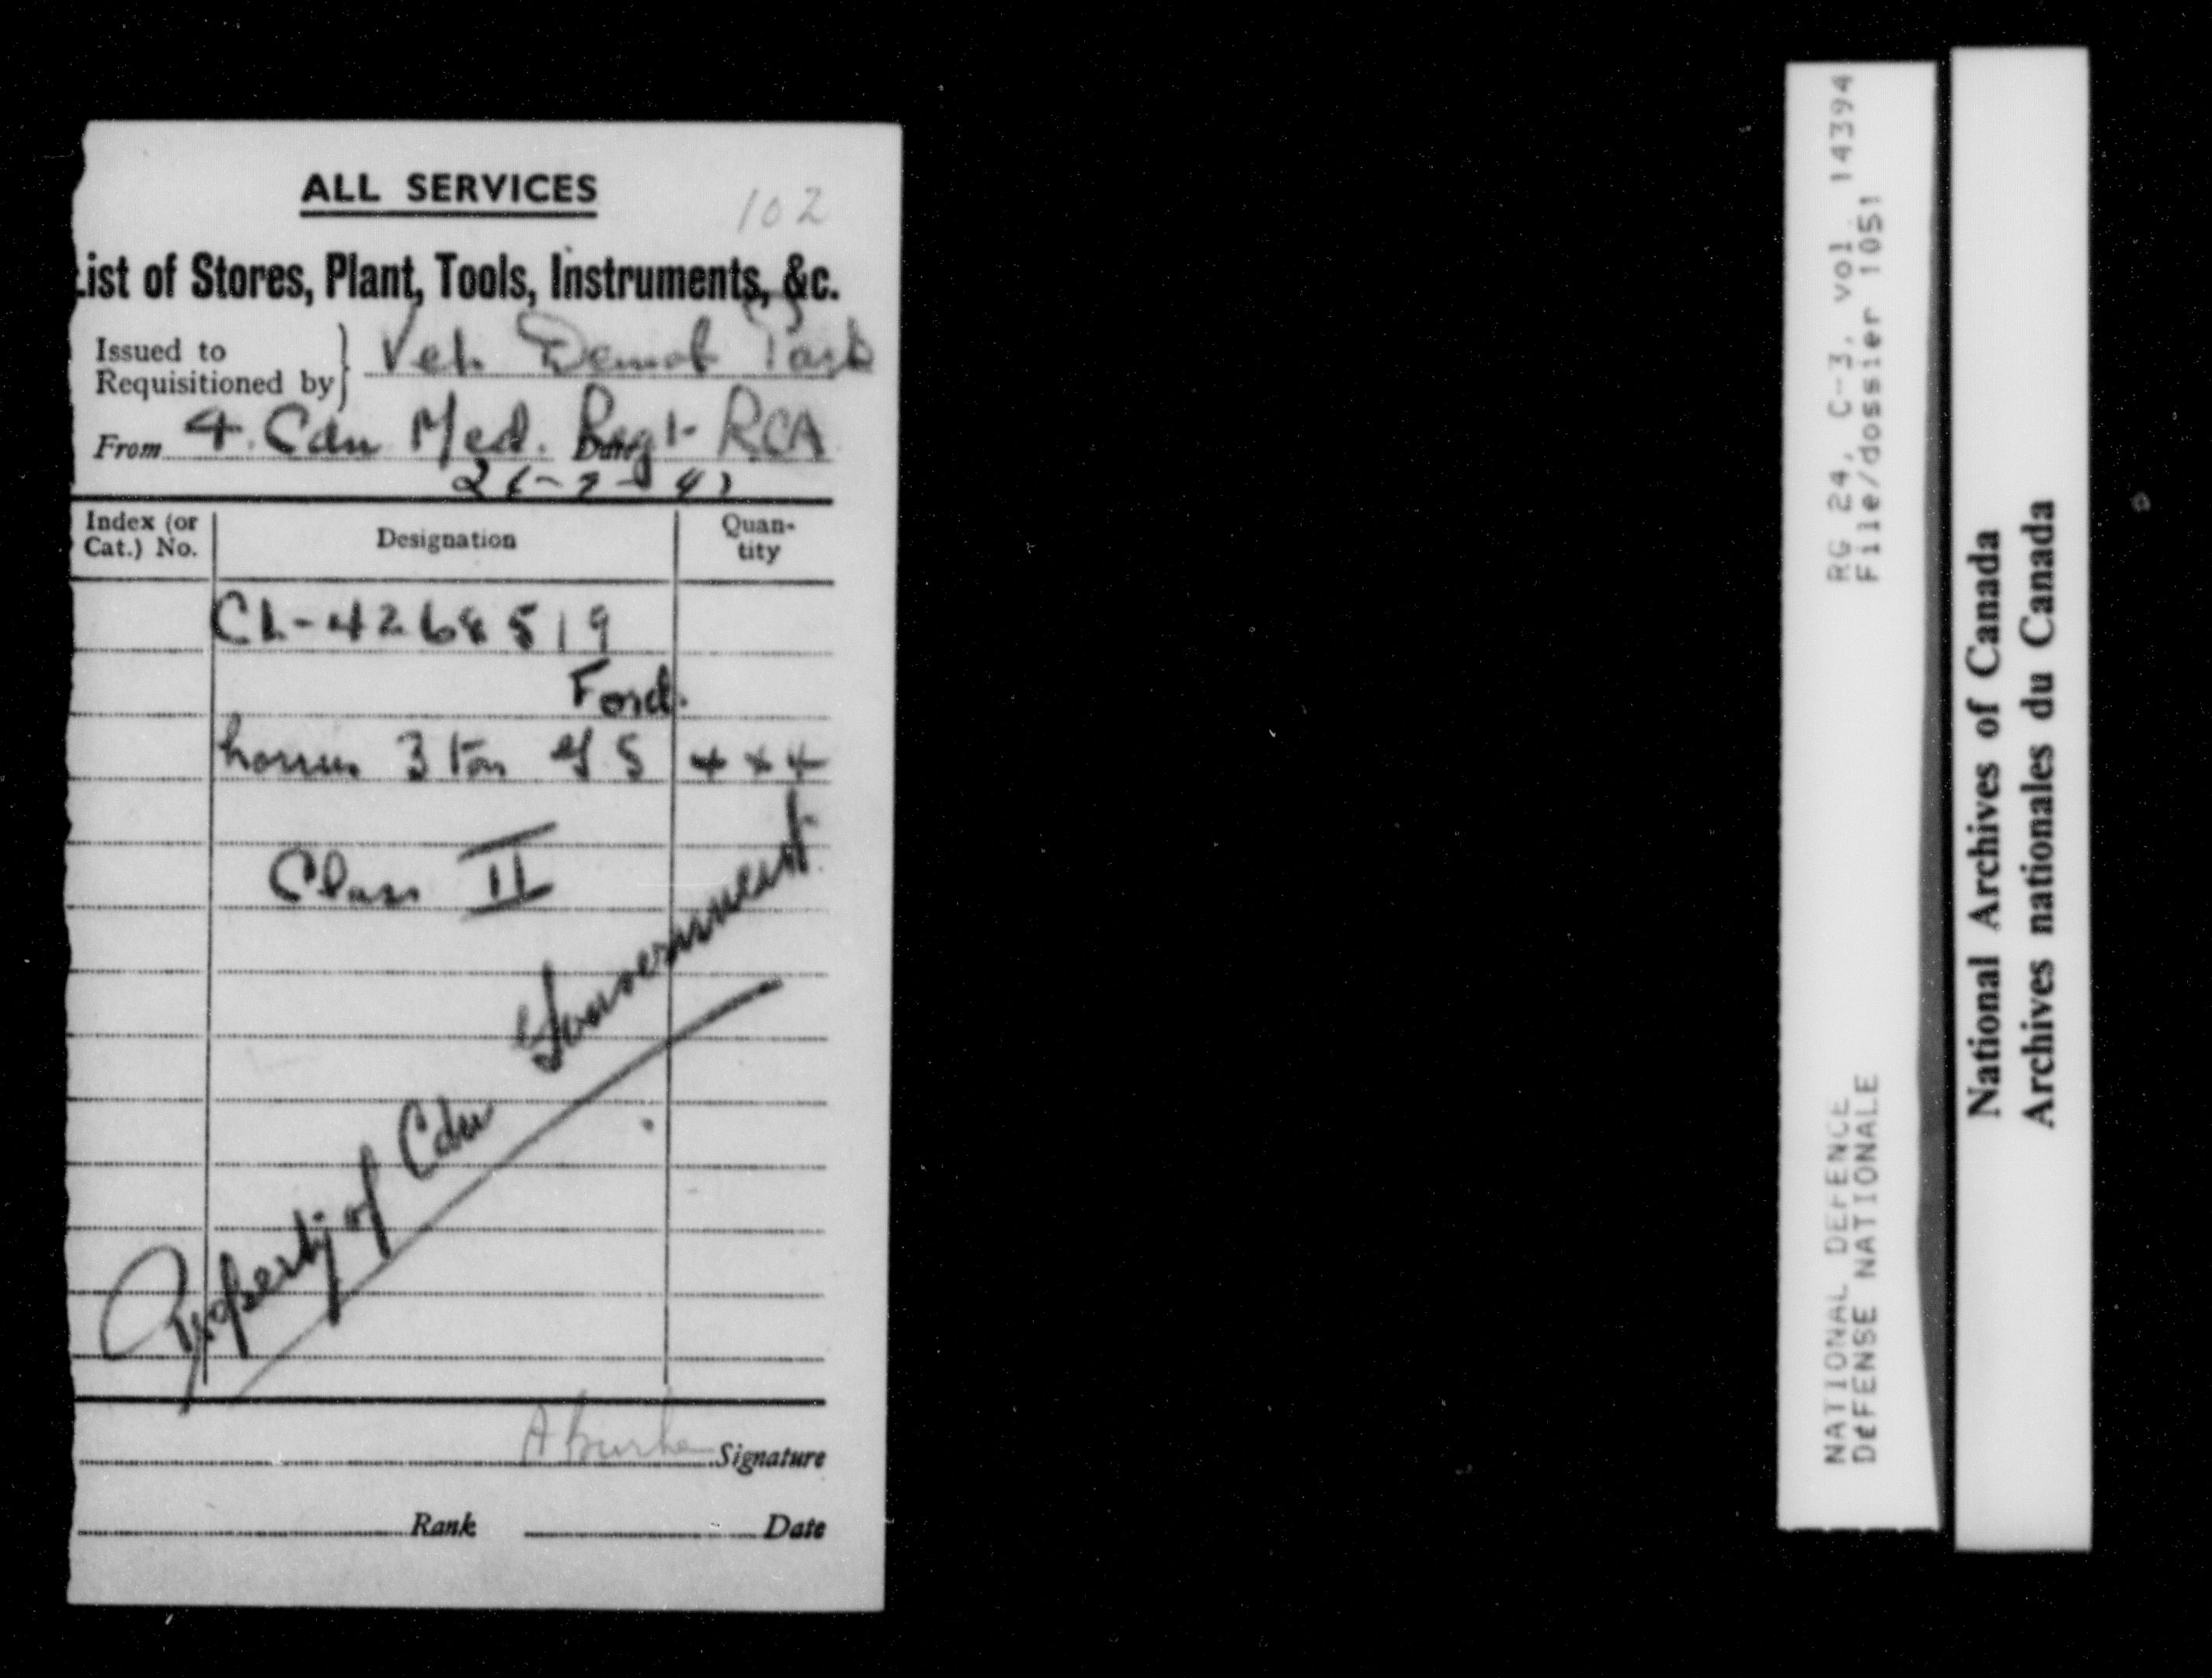 ALL SERVICES
102
List of Stores, Plant, Tools, Instruments, &c.
Issued to
Requisitioned by } Veh Demob Park
From 4. Cdn Med. Regt RCA
Date
Index (or Cat.) No.
Designation
Quan-tity
CL-4268519
Ford.
3 Ton G S
Class II
Property of Cdn Government
Signature
Rank Date
RG 24, C-3, vol. 14394
File/dossier 1051
NATIONAL DEFENCE
DEFENSE NATIONALE
National Archives of Canada
Archives nationales du Canada